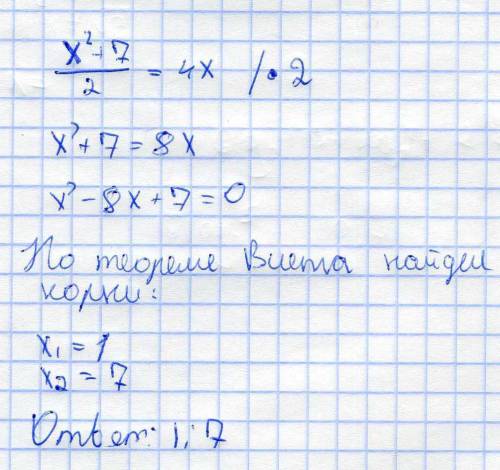 x²+7 / 2 = 4x /• 2
x²+7=8x
x²-8x+7=0
По теореме Виета найдем
корни:
x₁ = 1
x₂ = 7
Ответ: 1; 7